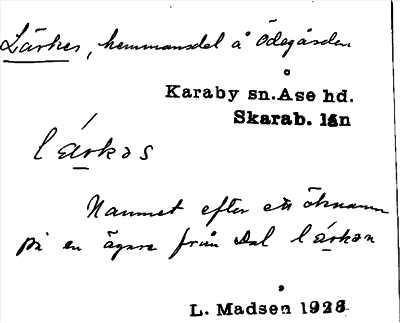 Lärkes, hemmansdel å Ödegården
Karaby sn. Åse hd.
Skarab. län
lä́rkas
Namnet efter ett öknamn
på en ägare från Dal lä́rkan
L. Madsén 1928